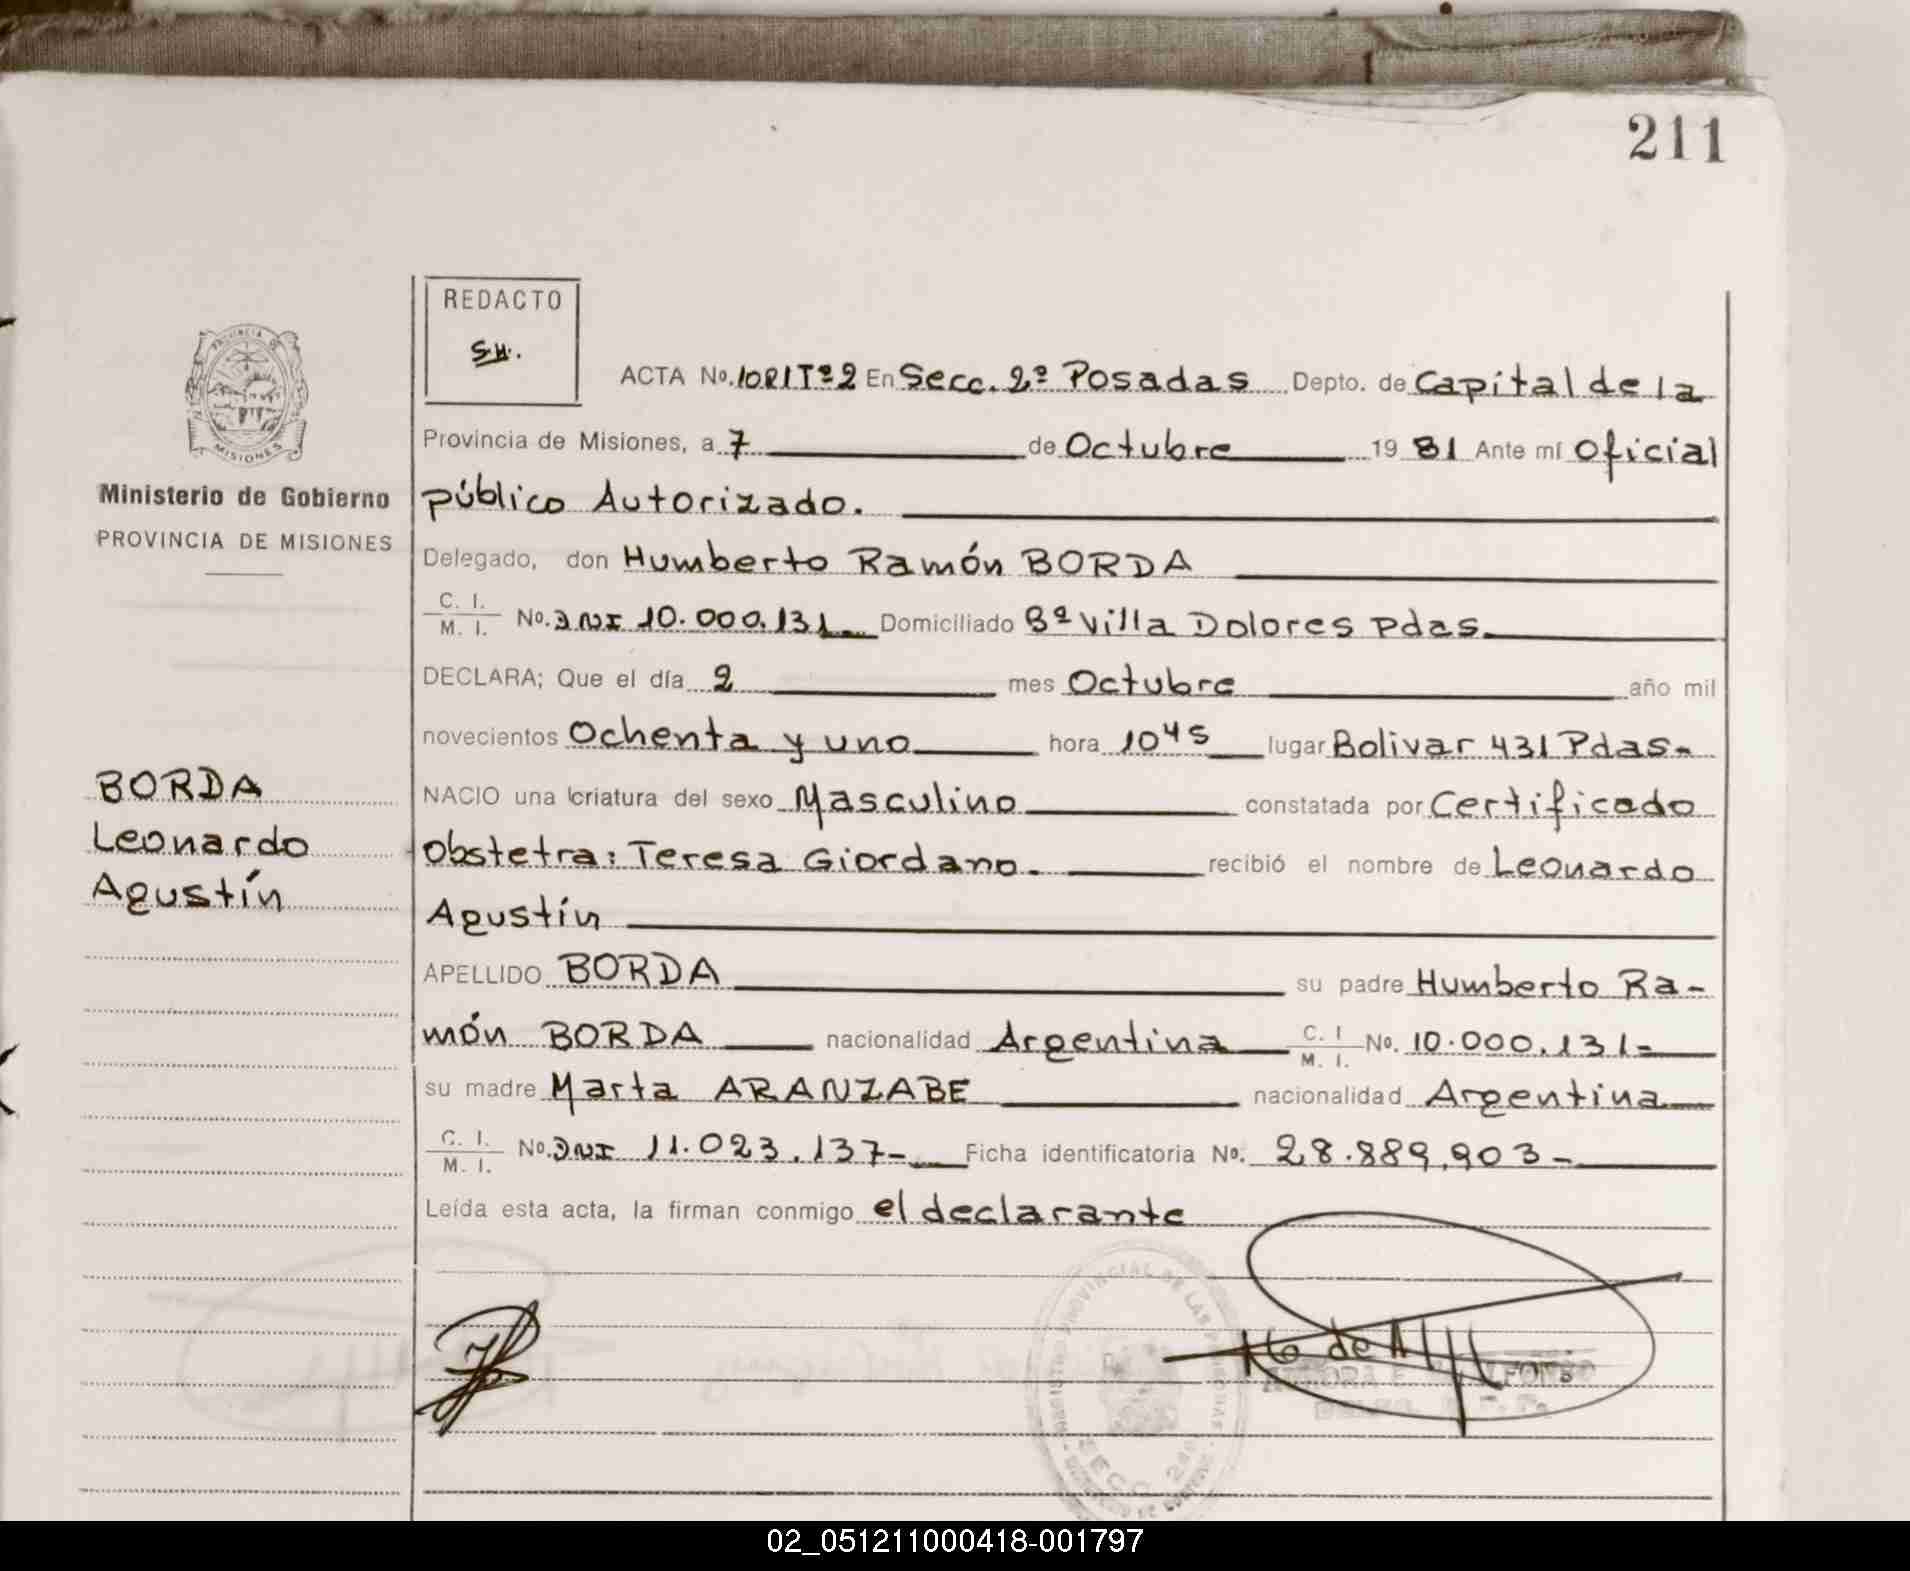 211
REDACTO
S.H.
PROVINCIA DE
MISIONES
ACTA No. 1021 Tº 2 En Secc. 2ª Posadas Depto. de Capital de la
Provincia de Misiones, a 7 de Octubre 1981 Ante mí Oficial
Ministerio de Gobierno
PROVINCIA DE MISIONES
público Autorizado.
Delegado, don Humberto Ramón BORDA
C. I. / M. I. No. DNI 10.000.131 Domiciliado Bº Villa Dolores Pdas.
DECLARA; Que el día 2 mes Octubre año mil
novecientos Ochenta y uno hora 10 45 lugar Bolivar 431 Pdas-
BORDA
Leonardo
Agustín
NACIO una criatura del sexo Masculino constatada por Certificado
obstetra: Teresa Giordano. recibió el nombre de Leonardo
Agustín
APELLIDO BORDA su padre Humberto Ra-
món BORDA nacionalidad Argentina C. I / M. I. No. 10.000.131-
su madre Marta ARANZABE nacionalidad Argentina
C. I. / M. I. No. DNI 11.023.137- Ficha identificatoria No. 28.889.903-
Leída esta acta, la firman conmigo el declarante
02_051211000418-001797